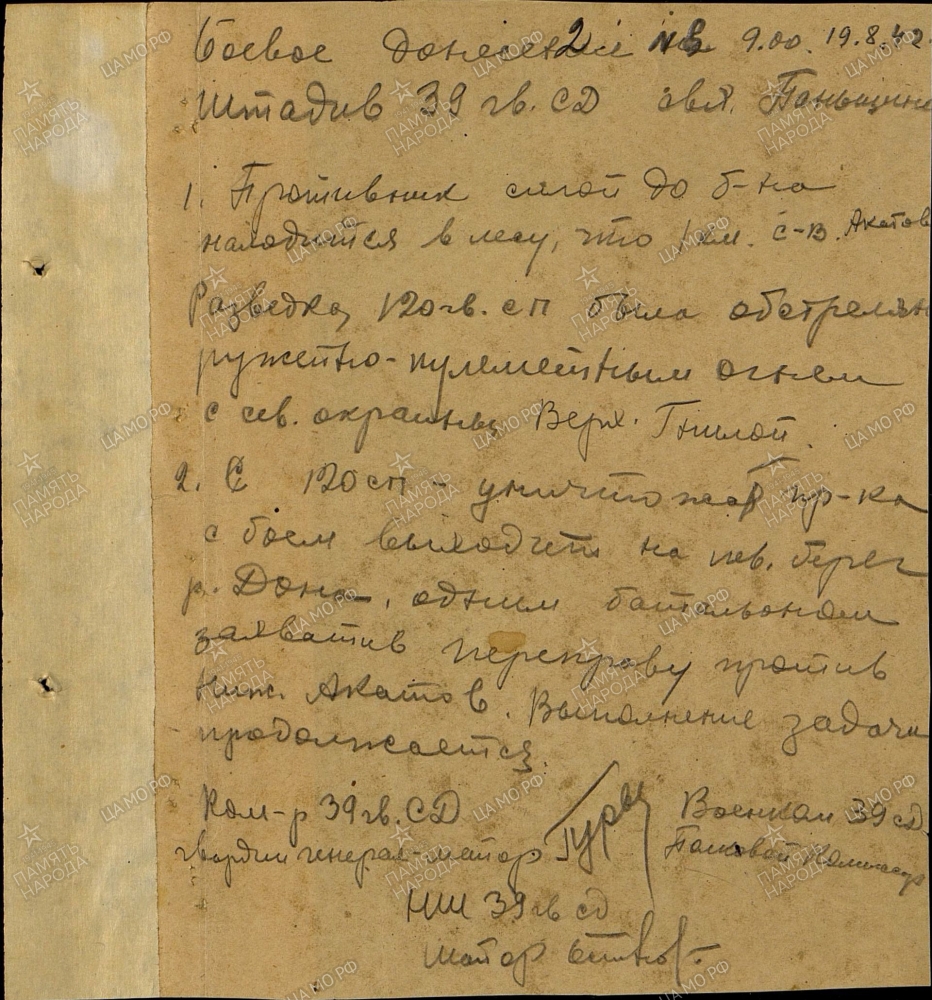 Боевое донесение 2 на 9.00. 19.8.42
Штадив 39 гв. СД Паньшино
1. Противник силой до б-на
находится в лесу, что 1 км. с-в. Акатов
Разведка 120 гв. сп была обстреляна
ружейно-пулеметным огнем
с сев. окраины Верх. Гнилой.
2. 120 сп - уничтожая пр-ка
с боем выходит на лев. берег
р. Дона, одним батальоном
захватив переправу против
Ниж. Акатов. Выполнение задачи
продолжается.
Ком-р 39 гв. СД Военком 39 СД
гвардии генерал-майор Гурьев Полковой Комиссар
НШ 39 гв сд
майор